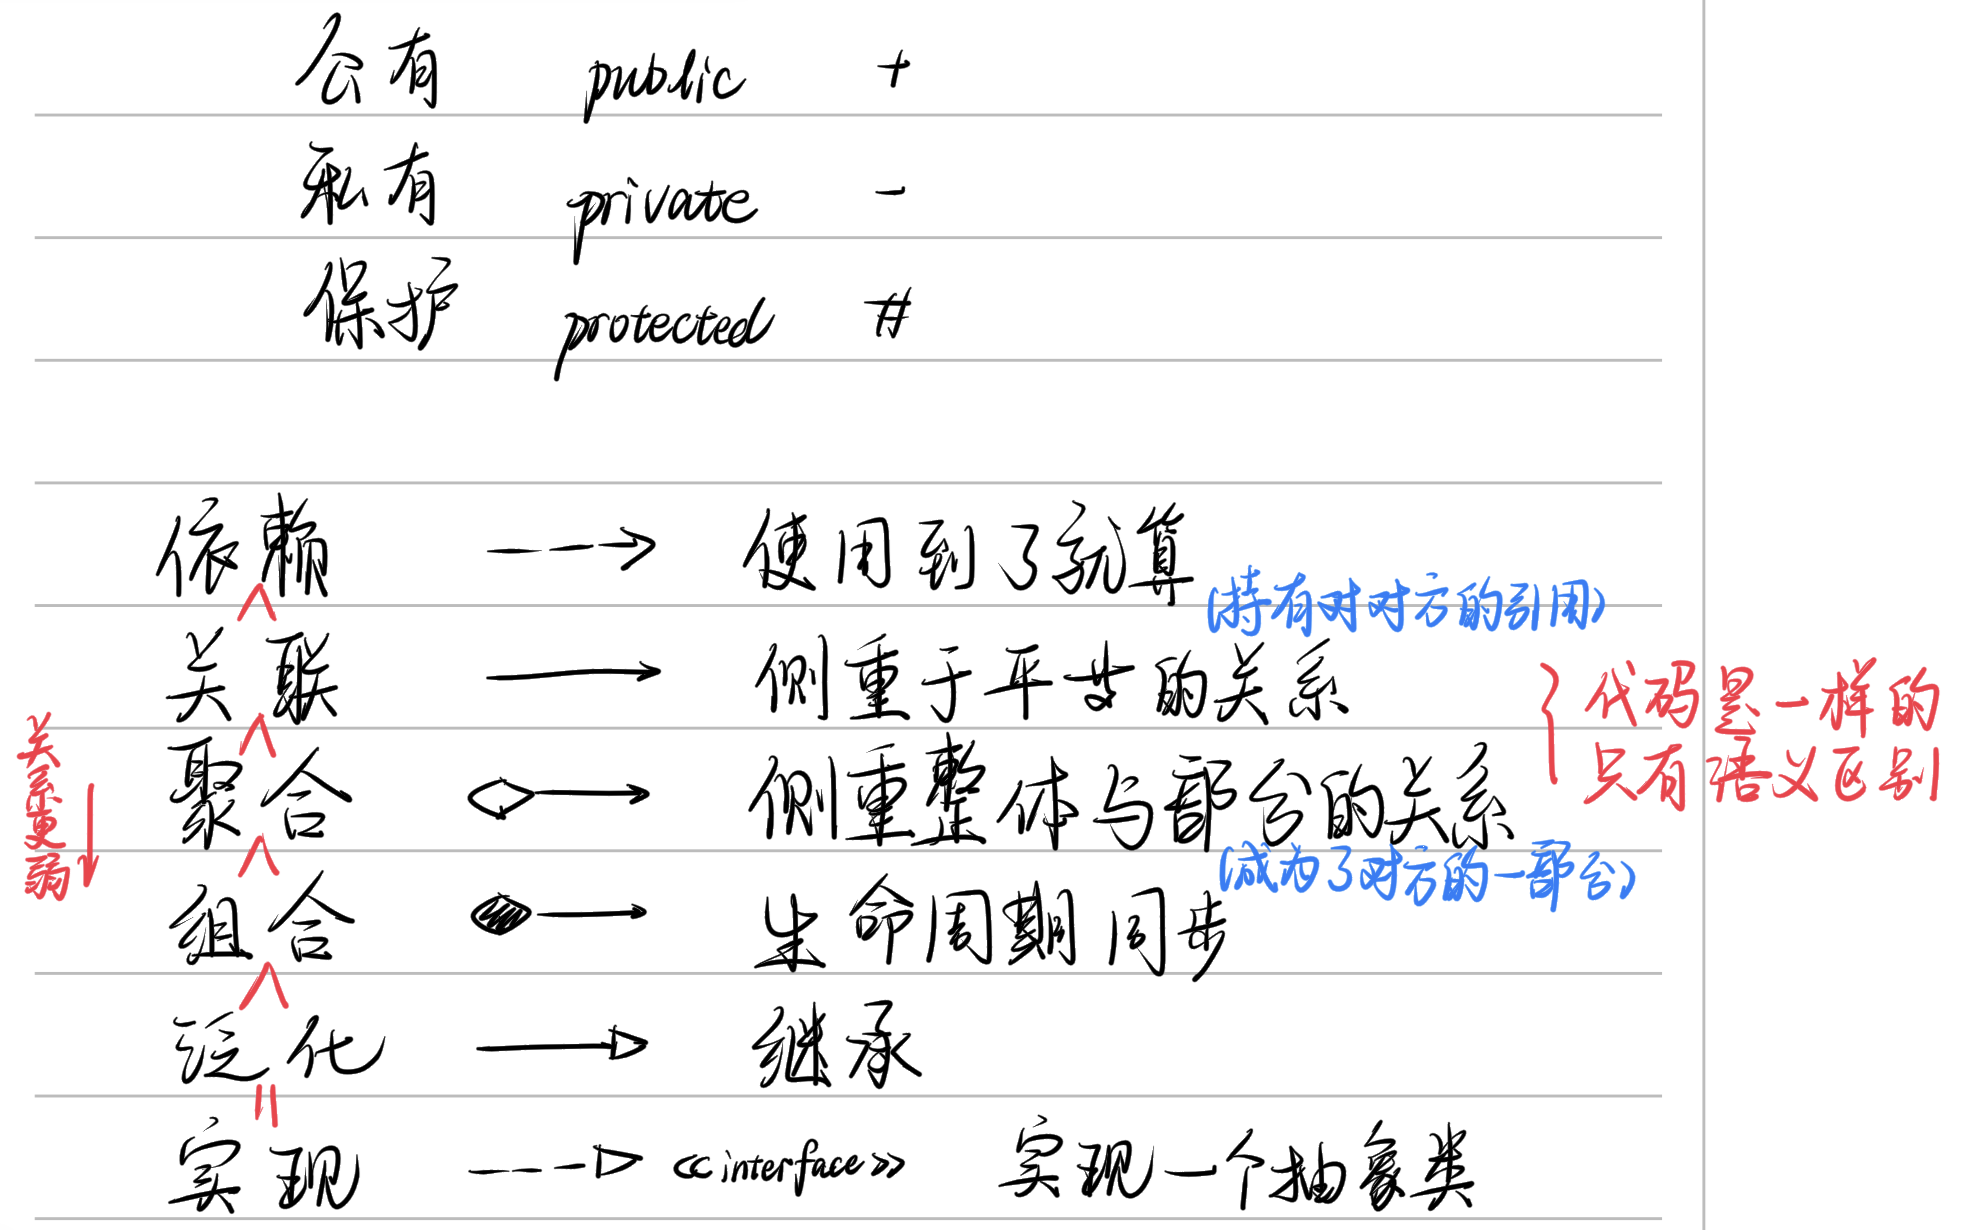 公有 public +
私有 private -
保护 protected #
依赖 使用到了就算
(持有对对方的引用)
关联 侧重于平等的关系
代码是一样的
只有语义区别
聚合 侧重整体与部分的关系
(成为了对方的一部分)
关系更弱
组合 生命周期同步
泛化 继承
实现 <<interface>> 实现一个抽象类